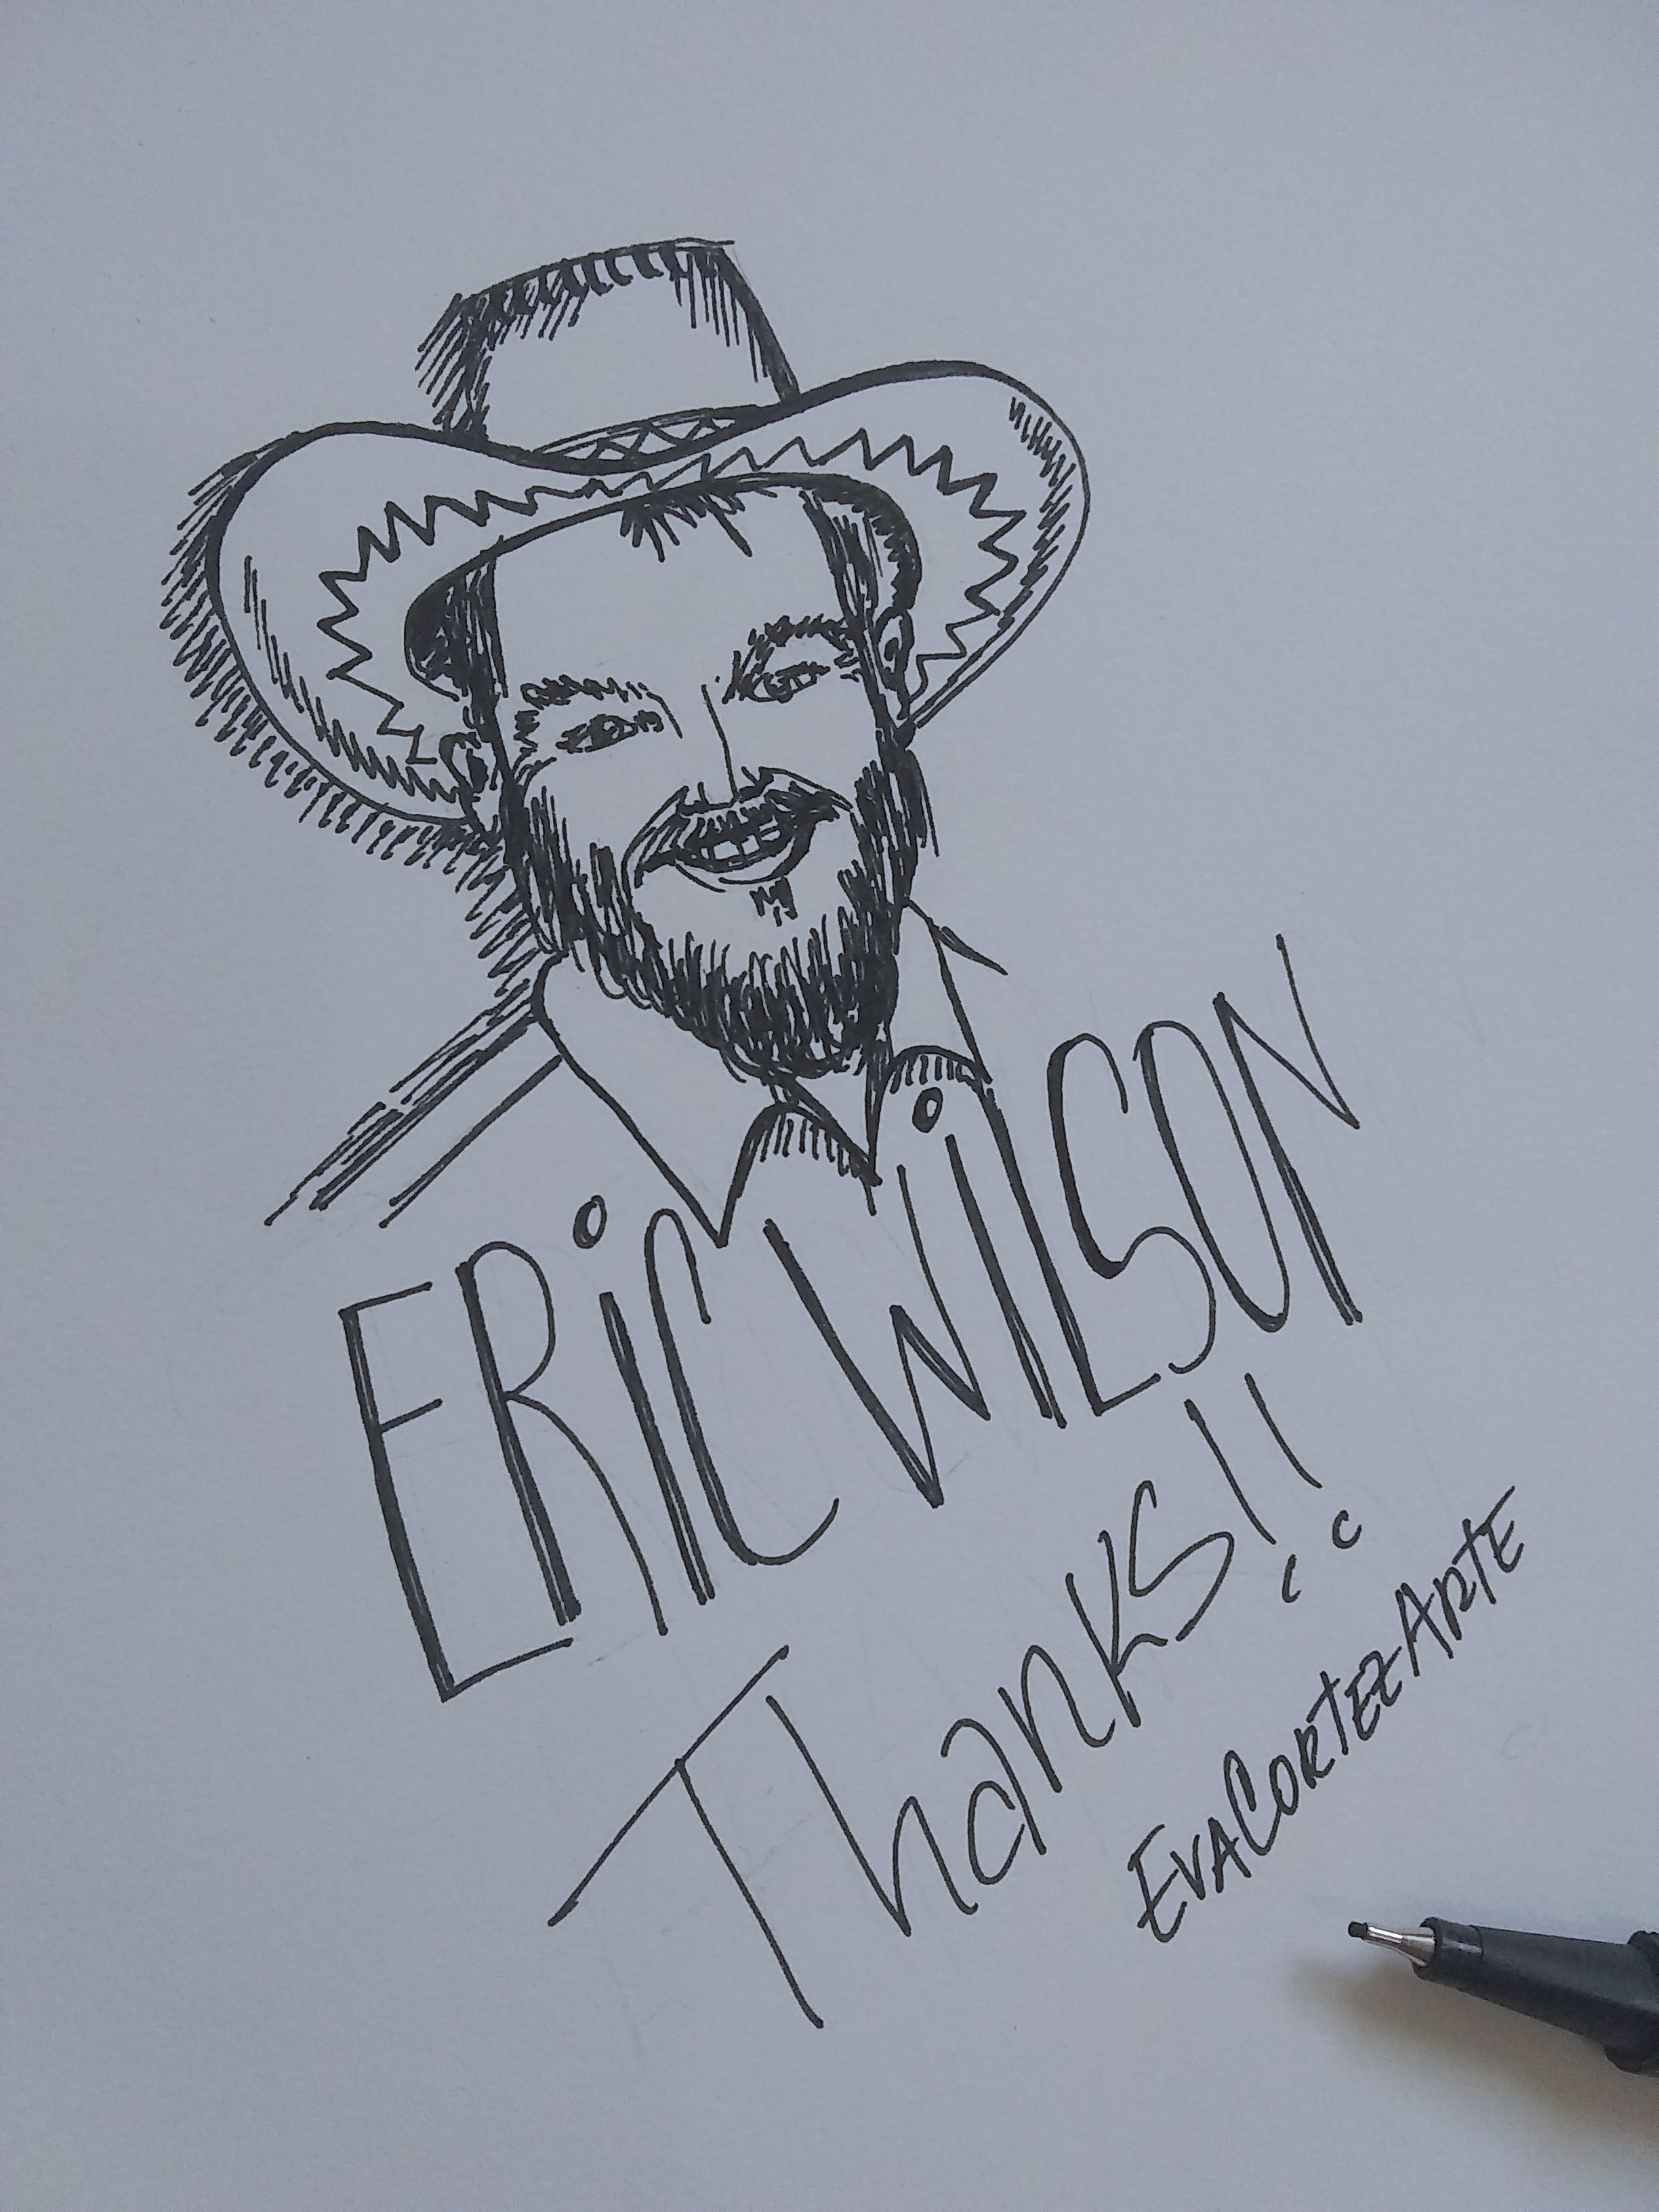 ERiC WiLSON
Thanks!!
EVACORTEZARTE